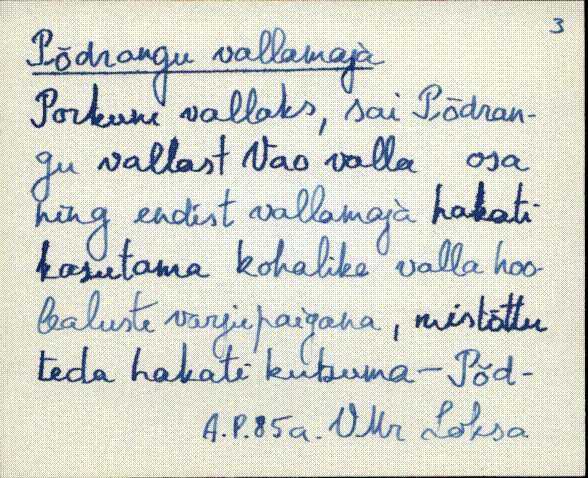 3
Põdrangu vallamajà
Porkuni vallaks, sai Põdran-
gu vallast Vao valla osa
ning endist vallamajà hakati
kasutama kohalike valla hoo-
lealuste varjupaigana, mistõttu
teda hakati kutsuma - Põd-
A.P. 85a. VMr Loksa